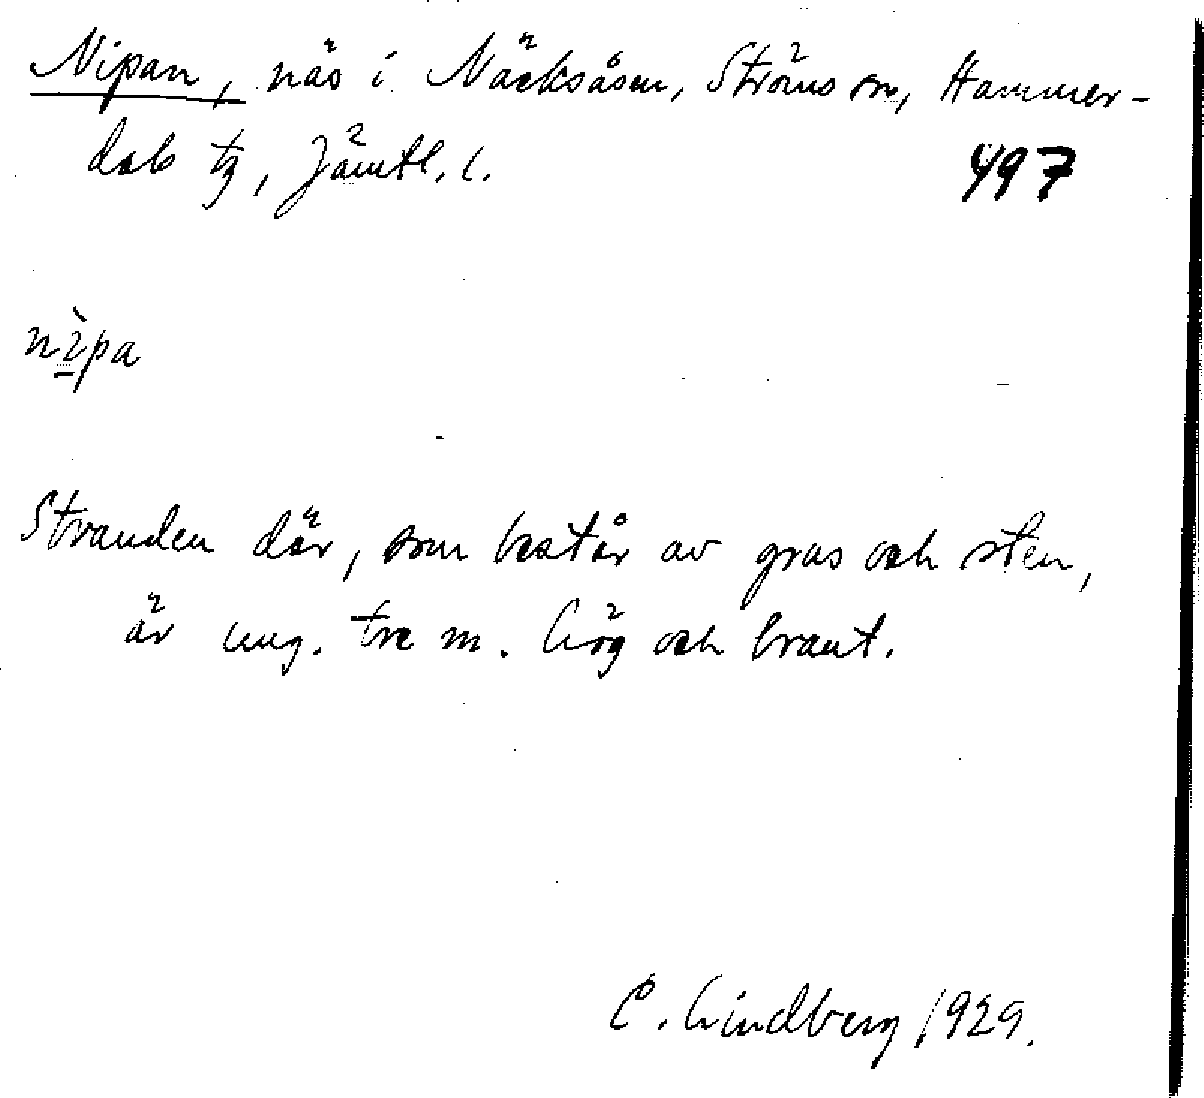 Nipan, näs i Näcksåsen, Ströms sn, Hammer-
dals tg, Jämtl. l.
497
nìpa
Stranden där, som består av grus och sten,
är ung. tre m. hög och brant.
C. Lindberg 1929.